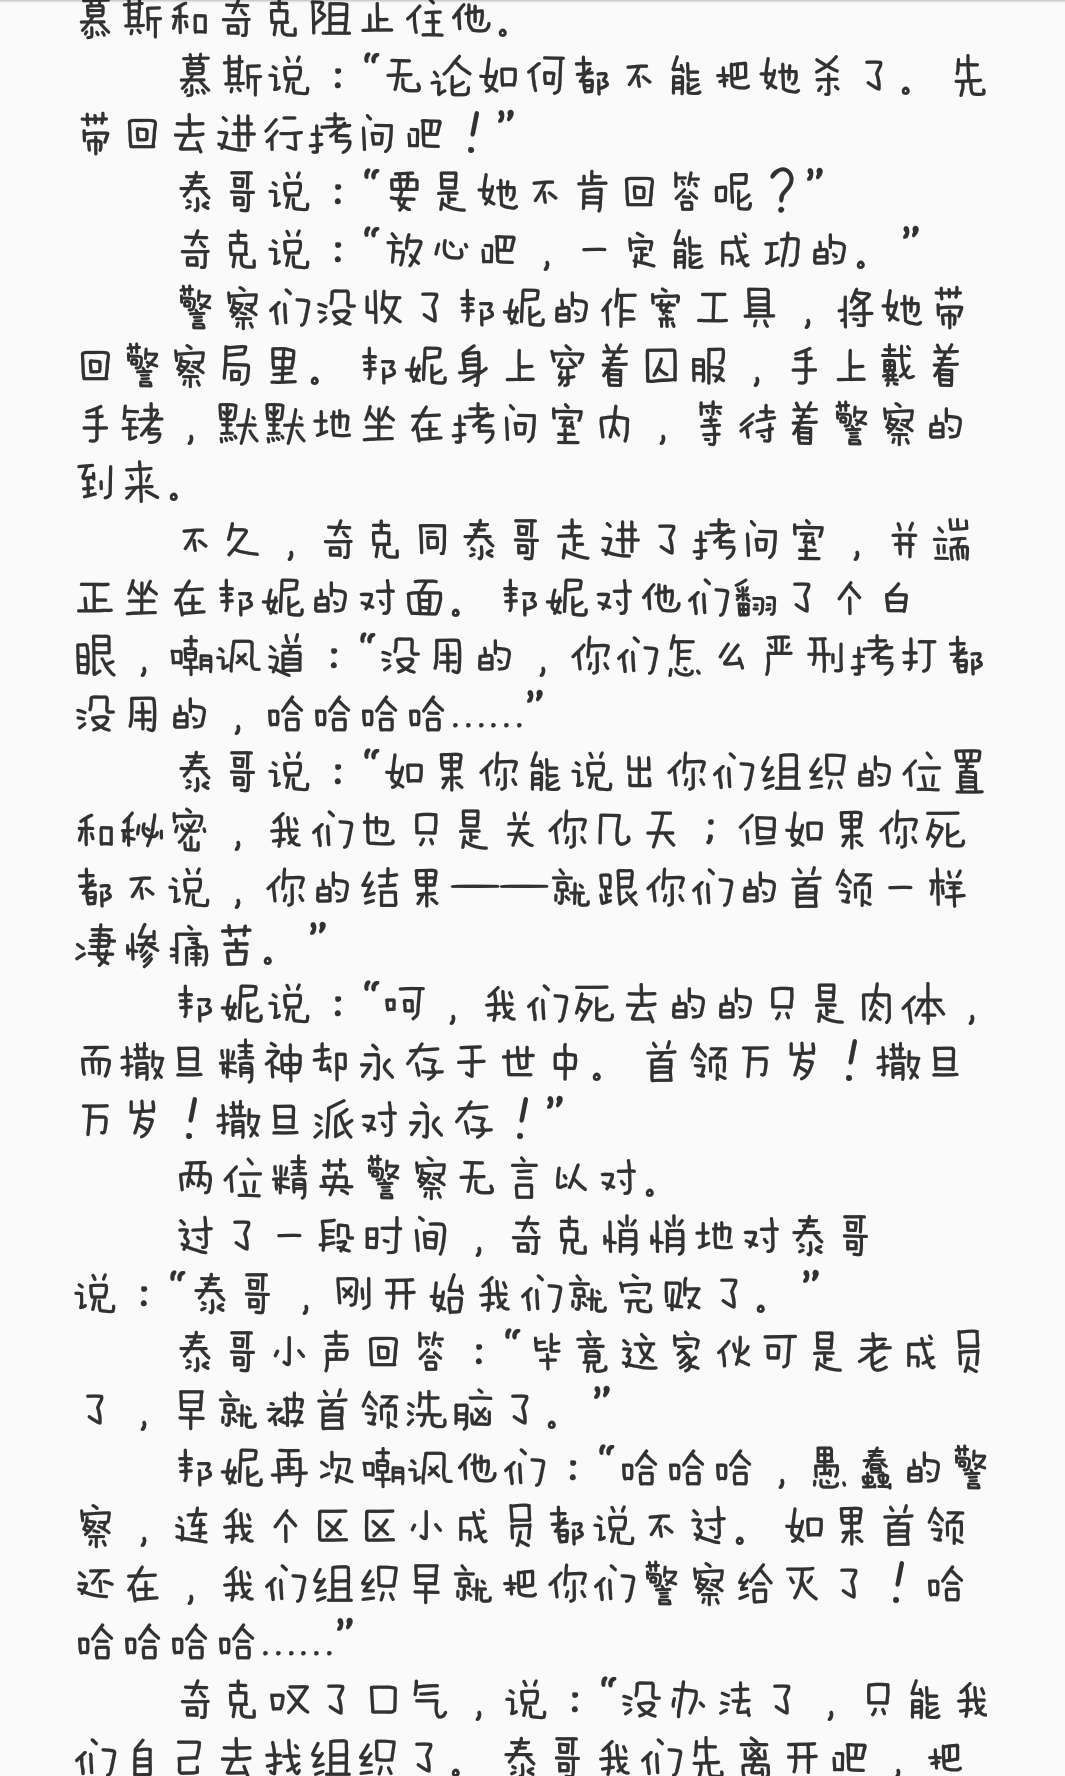 慕斯和奇克阻止住他。
慕斯说：“无论如何都不能把她杀了。先
带回去进行拷问吧！”
泰哥说：“要是她不肯回答呢？”
奇克说：“放心吧，一定能成功的。”
警察们没收了邦妮的作案工具，将她带
回警察局里。邦妮身上穿着囚服，手上戴着
手铐，默默地坐在拷问室内，等待着警察的
到来。
不久，奇克同泰哥走进了拷问室，并端
正坐在邦妮的对面。邦妮对他们翻了个白
眼，嘲讽道：“没用的，你们怎么严刑拷打都
没用的，哈哈哈哈……”
泰哥说：“如果你能说出你们组织的位置
和秘密，我们也只是关你几天；但如果你死
都不说，你的结果——就跟你们的首领一样
凄惨痛苦。”
邦妮说：“呵，我们死去的的只是肉体，
而撒旦精神却永存于世中。首领万岁！撒旦
万岁！撒旦派对永存！”
两位精英警察无言以对。
过了一段时间，奇克悄悄地对泰哥
说：“泰哥，刚开始我们就完败了。”
泰哥小声回答：“毕竟这家伙可是老成员
了，早就被首领洗脑了。”
邦妮再次嘲讽他们：“哈哈哈，愚蠢的警
察，连我个区区小成员都说不过。如果首领
还在，我们组织早就把你们警察给灭了！哈
哈哈哈哈……”
奇克叹了口气，说：“没办法了，只能我
们自己去找组织了。泰哥我们先离开吧，把